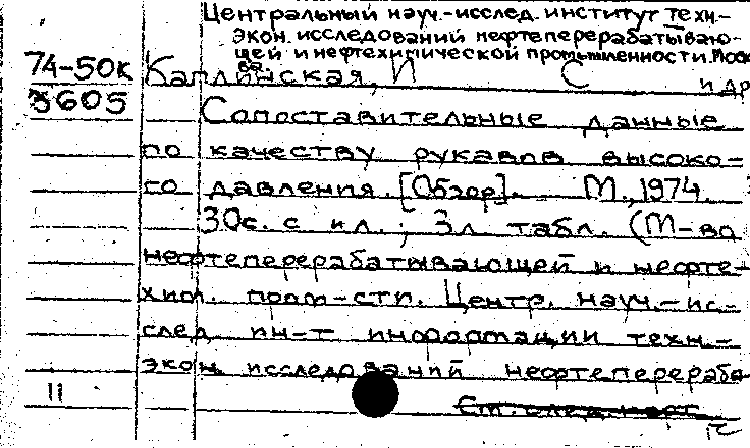 Центральный науч.-исслед. институт техн-
экон. исследований нефтеперерабатываю-
щей и нефтехимической промышленности. Моск
74-50к
Каплинская, И С и др
3605
Сопоставительные данные
по качеству рукавов высоко-
го давления. [Обзор]. М., 1974.
30с. с ил.; 3л табл. (М-во
нефтеперерабатывающей и нефте-
хим. пром-сти. Центр. науч.-ис-
след ин-т информации техн.-
экон исследований нефтеперераба
11
См. след. карт.